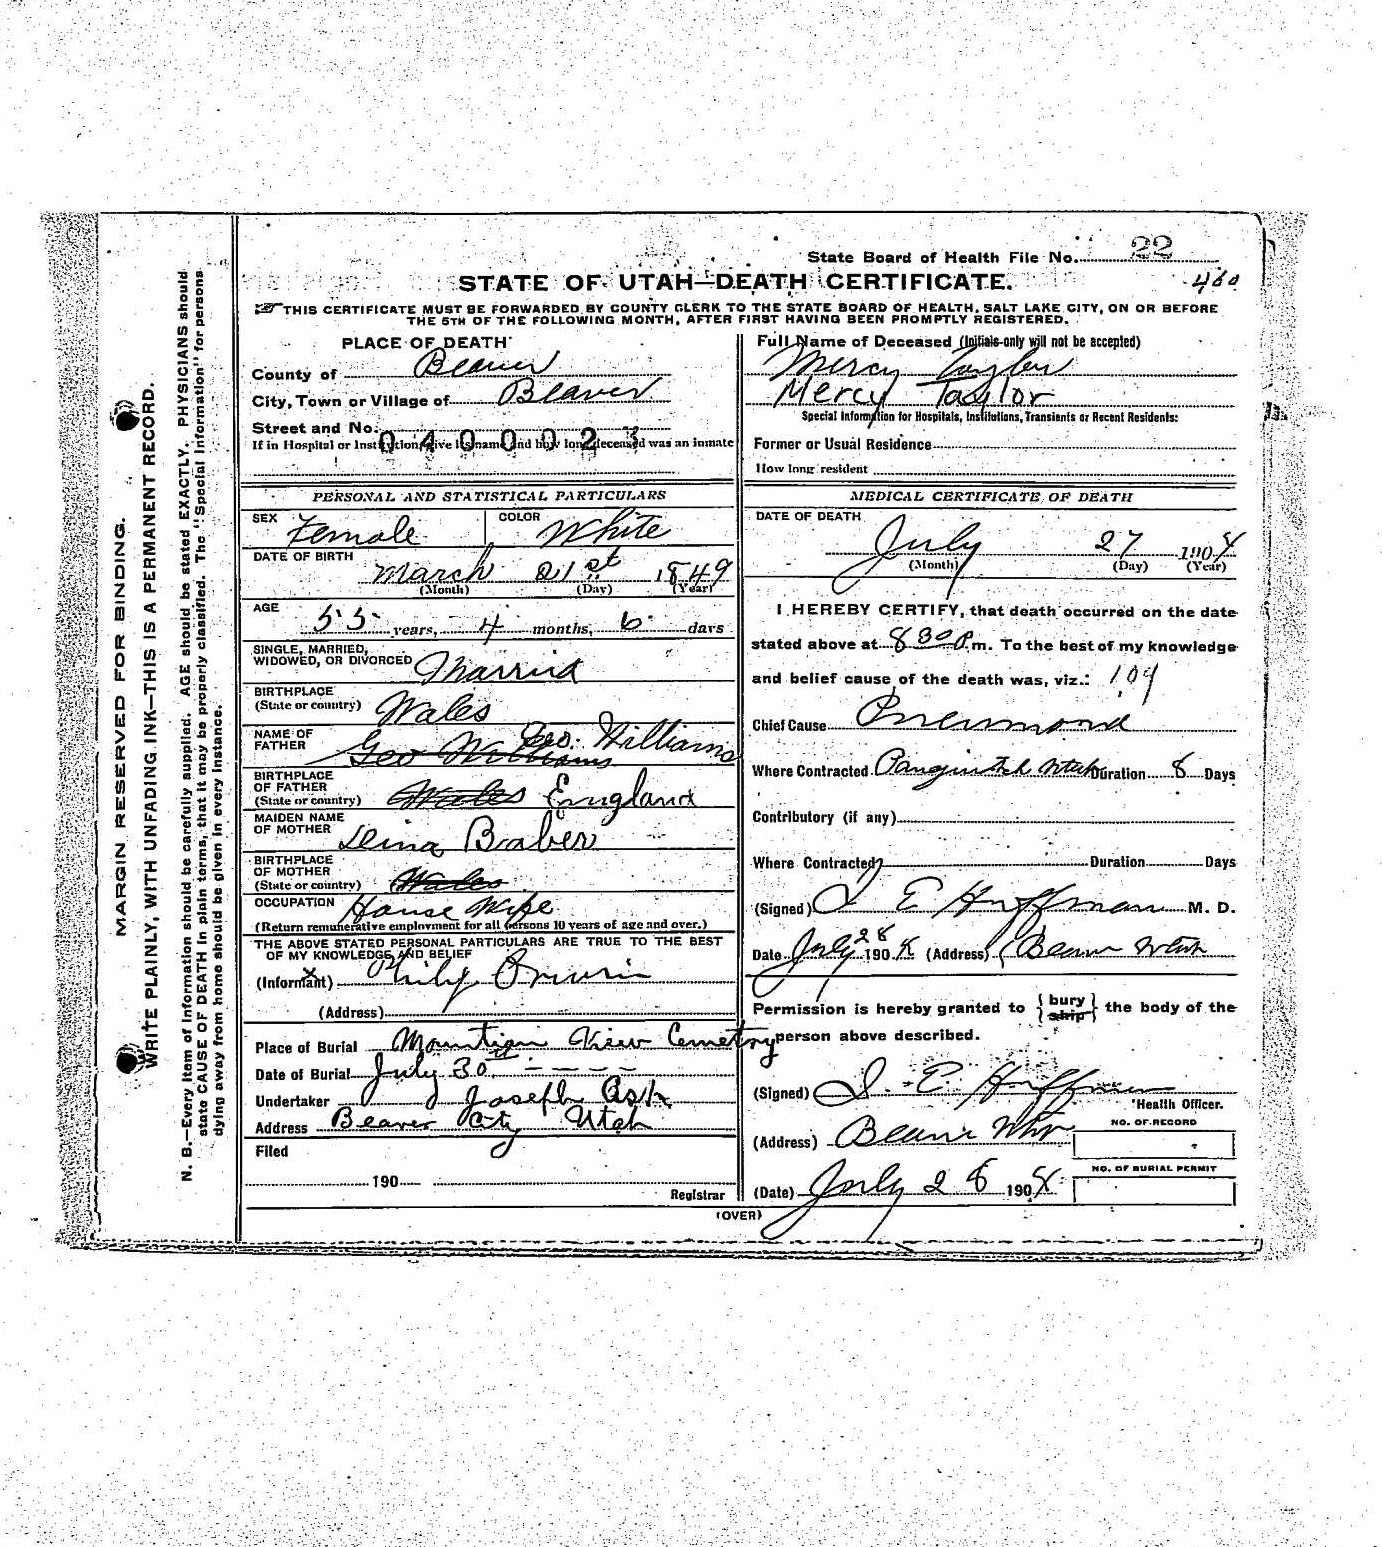 State Board of Health File No. 22
STATE OF UTAH—DEATH CERTIFICATE.
460
THIS CERTIFICATE MUST BE FORWARDED BY COUNTY CLERK TO THE STATE BOARD OF HEALTH, SALT LAKE CITY, ON OR BEFORE
THE 5TH OF THE FOLLOWING MONTH, AFTER FIRST HAVING BEEN PROMPTLY REGISTERED.
MARGIN RESERVED FOR BINDING.
WRITE PLAINLY, WITH UNFADING INK—THIS IS A PERMANENT RECORD.
N. B.—Every item of information should be carefully supplied. AGE should be stated EXACTLY. PHYSICIANS should
state CAUSE OF DEATH in plain terms, that it may be properly classified. The "Special Information" for persons
dying away from home should be given in every instance.
PLACE OF DEATH
County of Beaver
City, Town or Village of Beaver
Street and No.
0400023
If in Hospital or Institution, give its name and how long deceased was an inmate
PERSONAL AND STATISTICAL PARTICULARS
SEX Female COLOR White
DATE OF BIRTH
March 21st 1849
(Month) (Day) (Year)
AGE
55 years, 4 months, 6 days
SINGLE, MARRIED,
WIDOWED, OR DIVORCED Married
BIRTHPLACE
(State or country) Wales
NAME OF
FATHER Geo Williams Geo. Williams
BIRTHPLACE
OF FATHER
(State or country) Wales England
MAIDEN NAME
OF MOTHER Leina Braber
BIRTHPLACE
OF MOTHER
(State or country) Wales
OCCUPATION House Wife
(Return remunerative employment for all persons 10 years of age and over.)
THE ABOVE STATED PERSONAL PARTICULARS ARE TRUE TO THE BEST
OF MY KNOWLEDGE AND BELIEF
(Informant)
(Address)
Place of Burial Mountian View Cemetry
Date of Burial July 30
Undertaker Joseph
Address Beaver City Utah
Filed
190
Registrar
Full Name of Deceased (Initials only will not be accepted)
Mercy Taylor
Mercy Taylor
Special Information for Hospitals, Institutions, Transients or Recent Residents:
Former or Usual Residence
How long resident
MEDICAL CERTIFICATE OF DEATH
DATE OF DEATH
July 27 1904
(Month) (Day) (Year)
I HEREBY CERTIFY, that death occurred on the date
stated above at 8 30 P.m. To the best of my knowledge
and belief cause of the death was, viz.: 109
Chief Cause Pneumond
Where Contracted Panguitch Utah Duration 8 Days
Contributory (if any)
Where Contracted Duration Days
(Signed) S E Huffman M. D.
Date July 28 1904 (Address) Beaver Utah
Permission is hereby granted to { bury ship } the body of the
person above described.
(Signed) S. E. Huffman
Health Officer.
(Address) Beaver Utah
NO. OF RECORD
NO. OF BURIAL PERMIT
(Date) July 28 1904
(OVER)